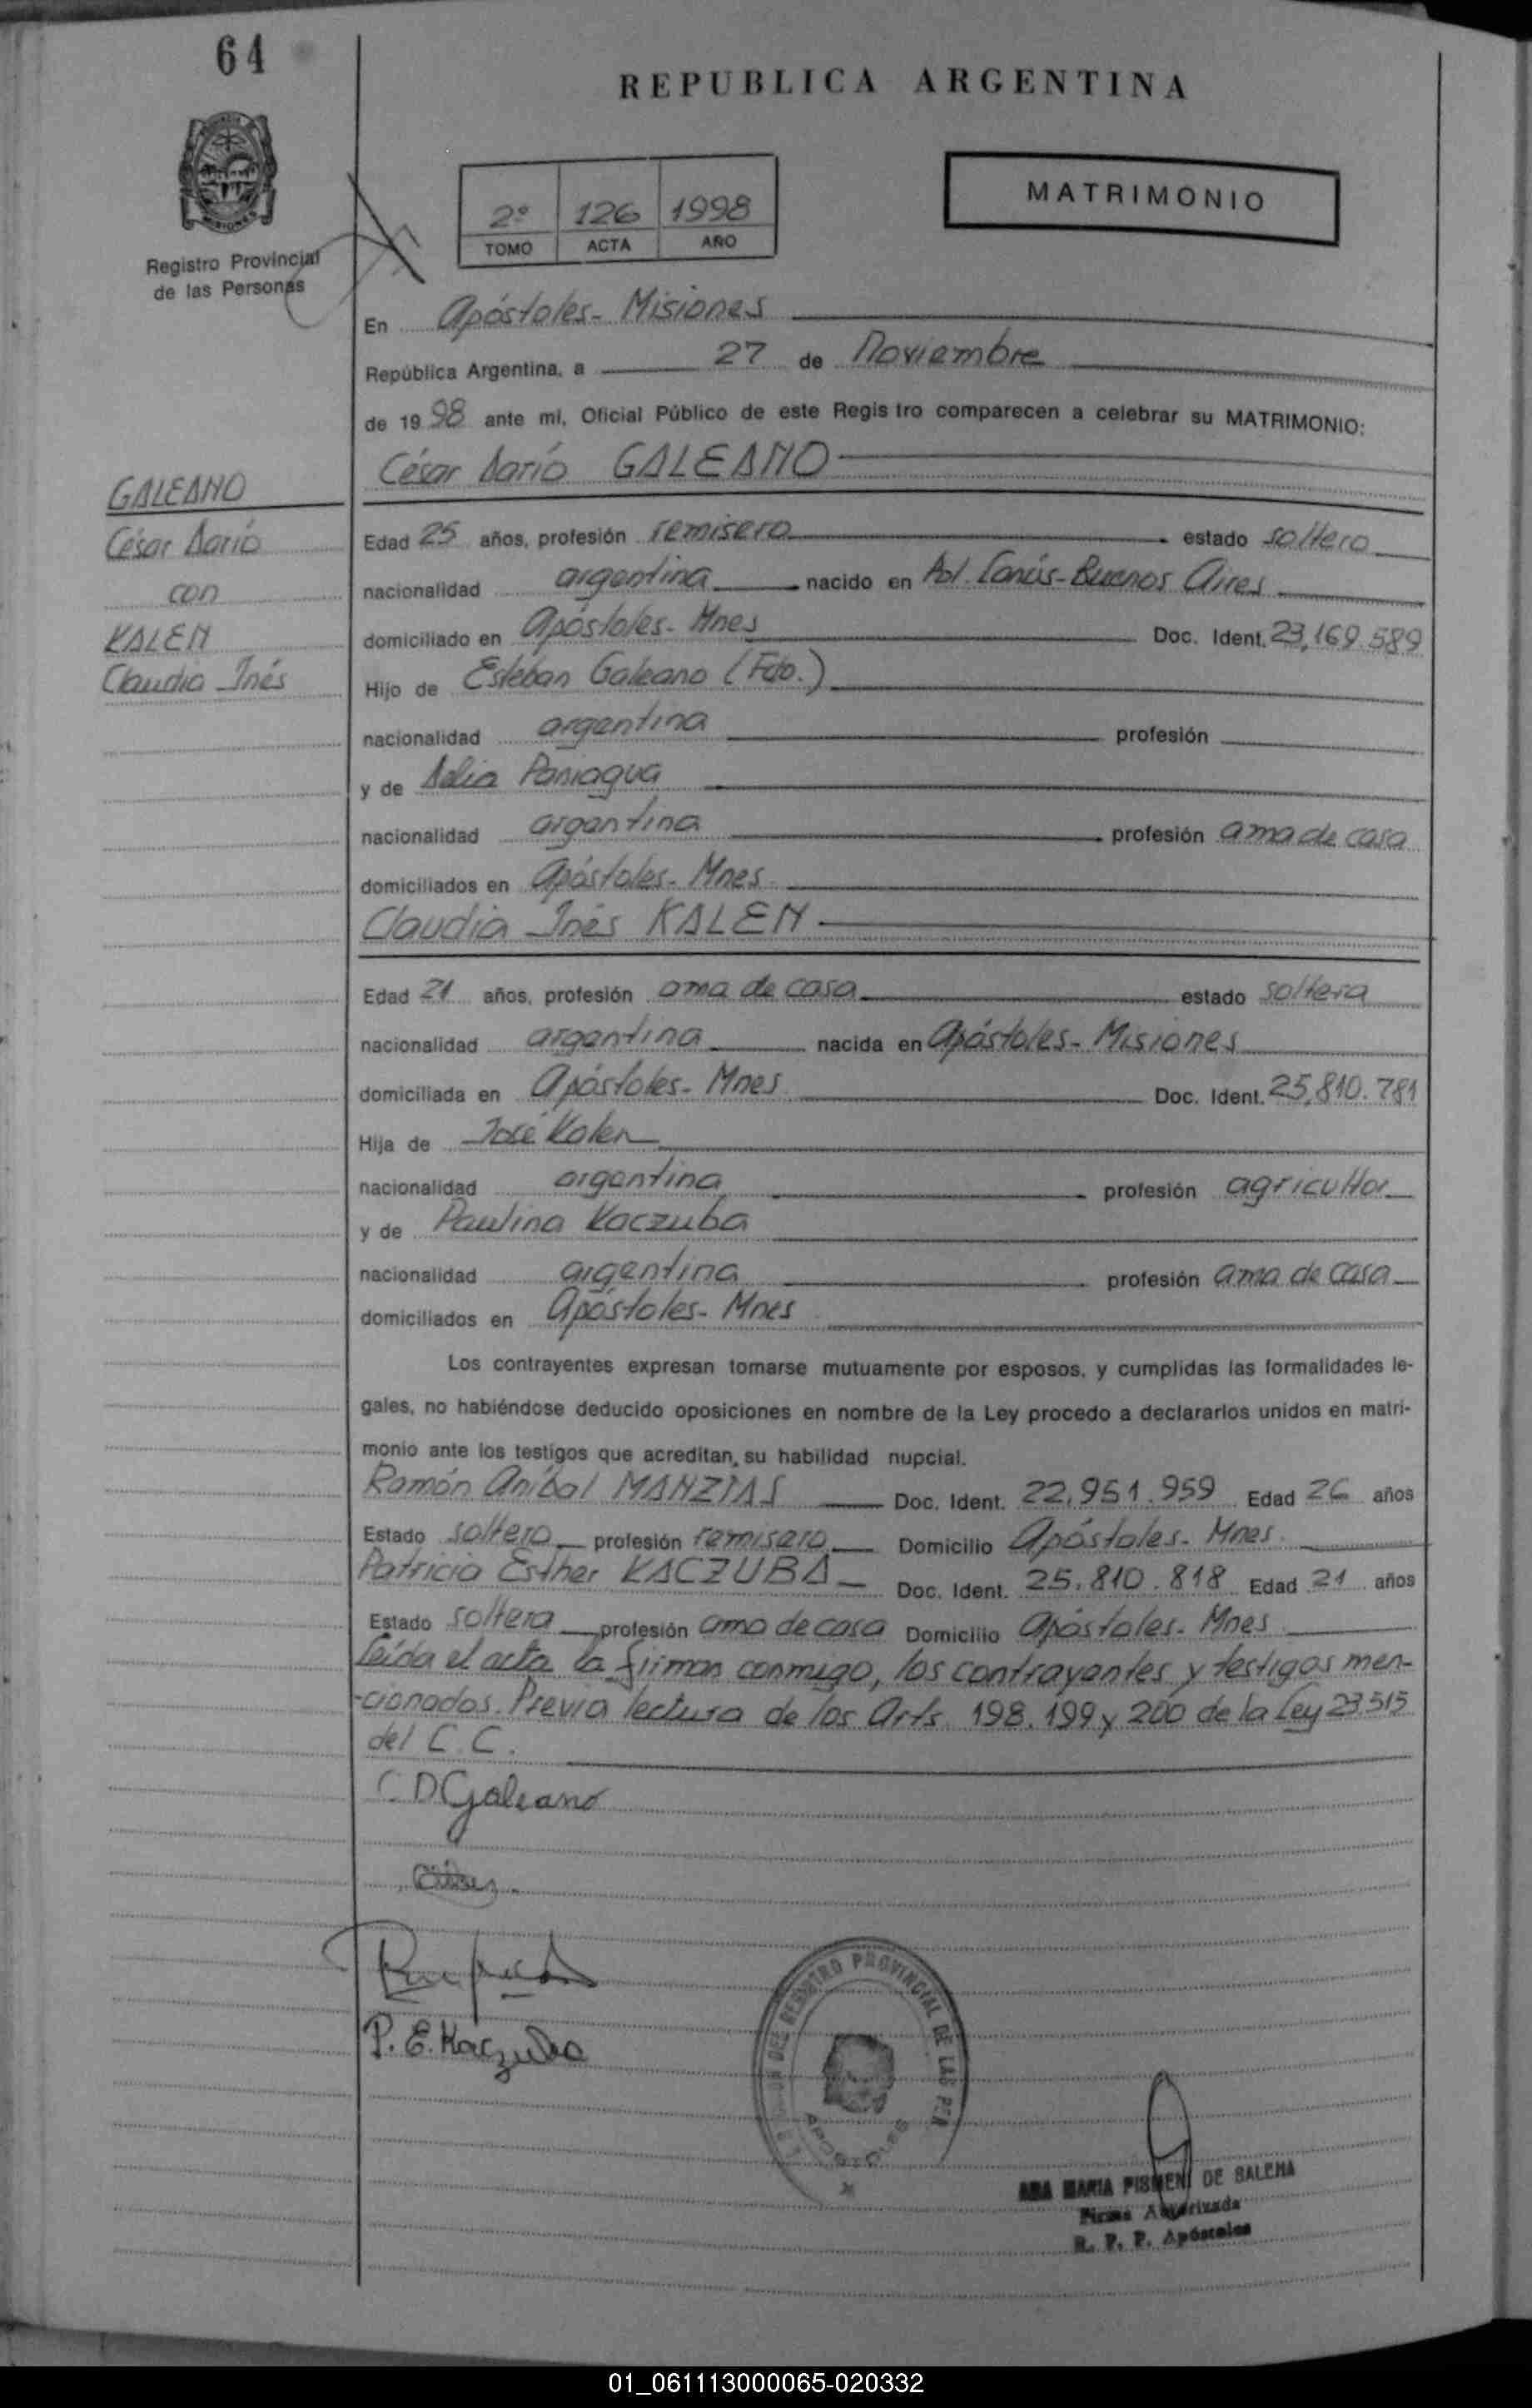 64
REPUBLICA ARGENTINA
MATRIMONIO
2º 126 1998
TOMO ACTA AÑO
Registro Provincial
de las Personas
En Apóstoles- Misiones
República Argentina, a 27 de Noviembre
de 1998 ante mí, Oficial Público de este Registro comparecen a celebrar su MATRIMONIO:
César Darío GALEANO
GALEANO
César Darío
con
KALEN
Claudia Inés
Edad 25 años, profesión remisero estado soltero
nacionalidad argentina nacido en Lanús-Buenos Aires
domiciliado en Apóstoles- Mnes Doc. Ident. 23,169.589
Hijo de Esteban Galeano (Fdo.)
nacionalidad argentina profesión
y de Delia Paniagua
nacionalidad argentina profesión ama de casa
domiciliados en Apóstoles- Mnes.
Claudia Inés KALEN
Edad 21 años, profesión ama de casa estado soltera
nacionalidad argentina nacida en Apóstoles- Misiones
domiciliada en Apóstoles- Mnes. Doc. Ident. 25,810.781
Hija de José Kalen
nacionalidad argentina profesión agricultor
y de Paulina Kaczuba
nacionalidad argentina profesión ama de casa
domiciliados en Apóstoles- Mnes
Los contrayentes expresan tomarse mutuamente por esposos, y cumplidas las formalidades le-
gales, no habiéndose deducido oposiciones en nombre de la Ley procedo a declararlos unidos en matri-
monio ante los testigos que acreditan, su habilidad nupcial.
Ramón Aníbal MANZIAS Doc. Ident. 22,951.959 Edad 26 años
Estado soltero profesión remisero Domicilio Apóstoles- Mnes.
Patricia Esther KACZUBA Doc. Ident. 25.810.818 Edad 21 años
Estado soltera profesión ama de casa Domicilio Apóstoles- Mnes
Leída el acta la firman conmigo, los contrayentes y testigos men-
-cionados. Previa lectura de los Arts. 198. 199 y 200 de la Ley 23.515
del C. C.
C.D Galeano
P. E. Kaczuba
DEL REGISTRO PROVINCIAL DE LAS PER
APOSTOLES
ANA MARIA PISMENI DE BALEMA
Firma Autorizada
R. P. P. Apóstoles
01_061113000065-020332